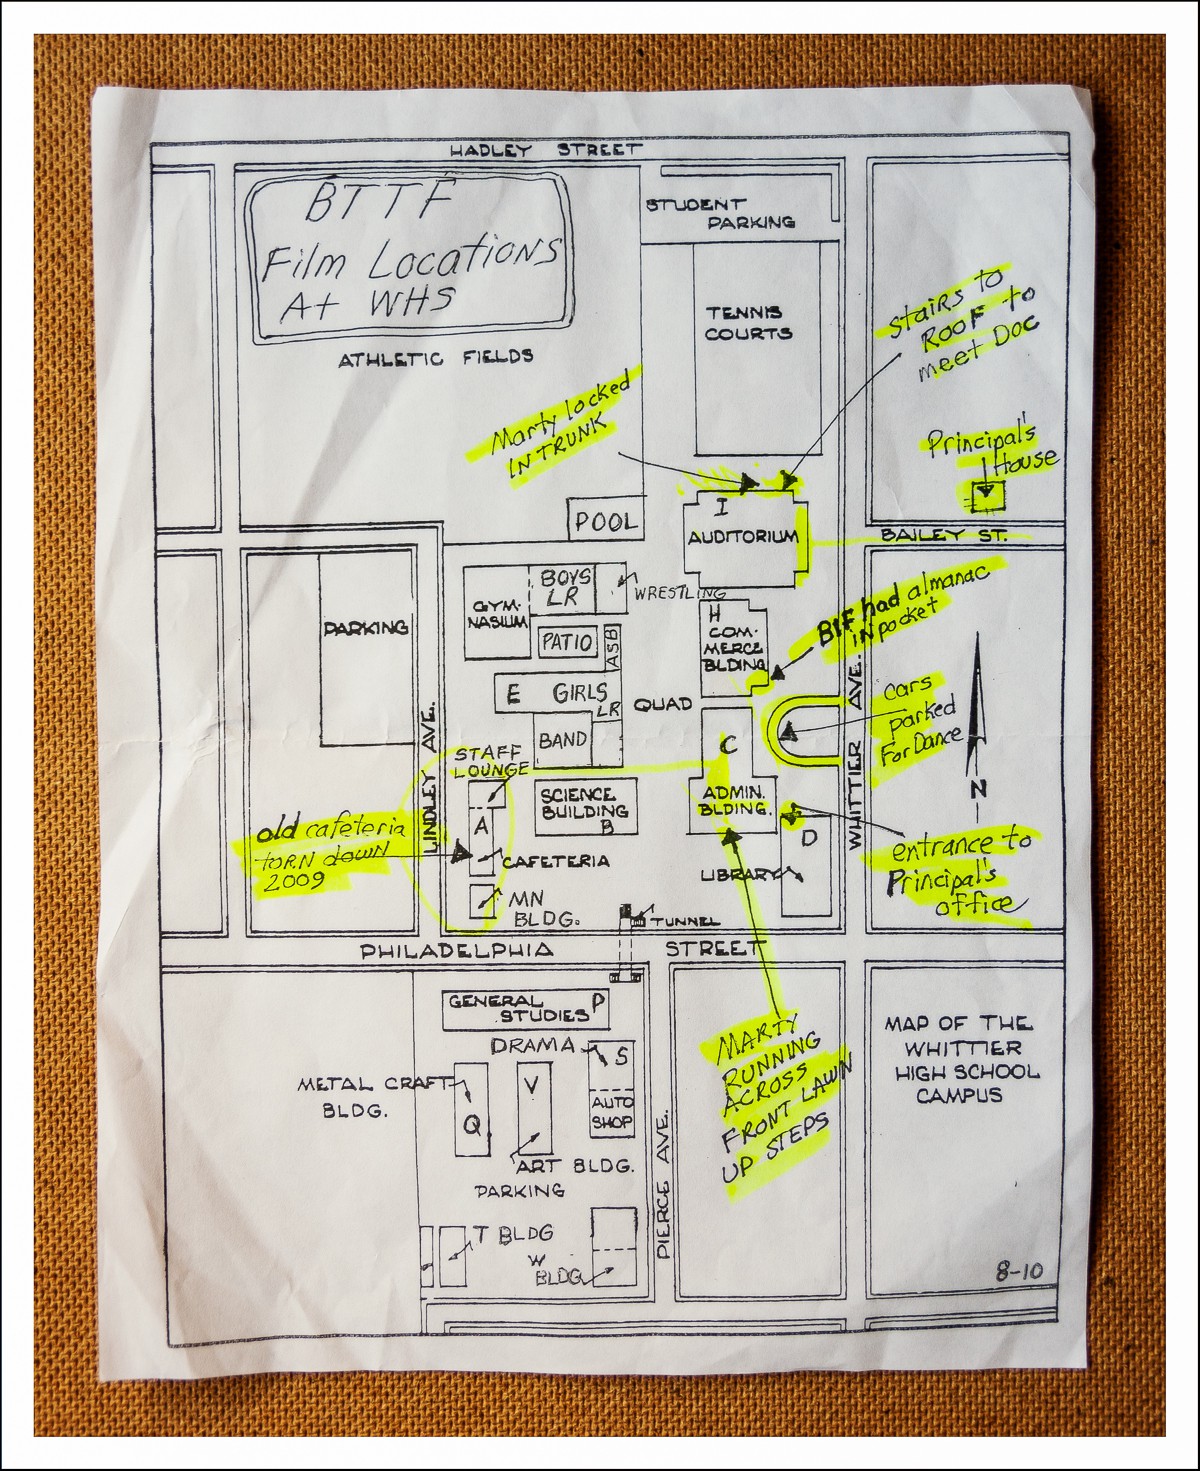 HADLEY STREET
BTTF
Film Locations
At WHS
ATHLETIC FIELDS
STUDENT
PARKING
TENNIS
COURTS
Stairs to
ROOF to
meet Doc
Marty locked
IN TRUNK
Principal's
House
POOL
I
AUDITORIUM
BAILEY ST.
PARKING
GYM-
NASIUM
BOYS
LR
WRESTLING
PATIO
ASB
H
COM-
MERCE
BLDING
BIF had almanac
IN pocket
E GIRLS
LR
QUAD
BAND
LINDLEY AVE.
WHITTIER AVE.
cars
parked
For Dance
N
STAFF
LOUNGE
C
ADMIN.
BLDING.
SCIENCE
BUILDING
B
A
CAFETERIA
old cafeteria
TORN down
2009
D
LIBRARY
entrance to
Principal's
office
MN
BLDG.
TUNNEL
PHILADELPHIA STREET
GENERAL P
STUDIES
DRAMA
S
AUTO
SHOP
METAL CRAFT
BLDG.
Q
V
ART BLDG.
PARKING
PIERCE AVE.
MARTY
RUNNING
ACROSS
FRONT LAWN
UP STEPS
MAP OF THE
WHITTIER
HIGH SCHOOL
CAMPUS
T BLDG
W
BLDG
8-10